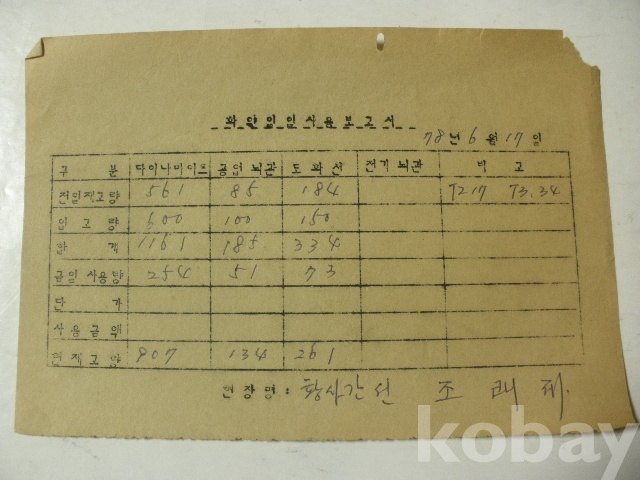 화약일일사용보고서
78년 6월 17일
구 분 다이나마이트 공업뇌관 도화선 전기뇌관 비 고
전일재고량 561 85 184 T217 T3.34
입고량 600 100 150
합 계 1161 185 334
금일사용량 254 51 73
단 가
사용금액
현재고량 907 134 261
현장명: 황사간선 조
kobay